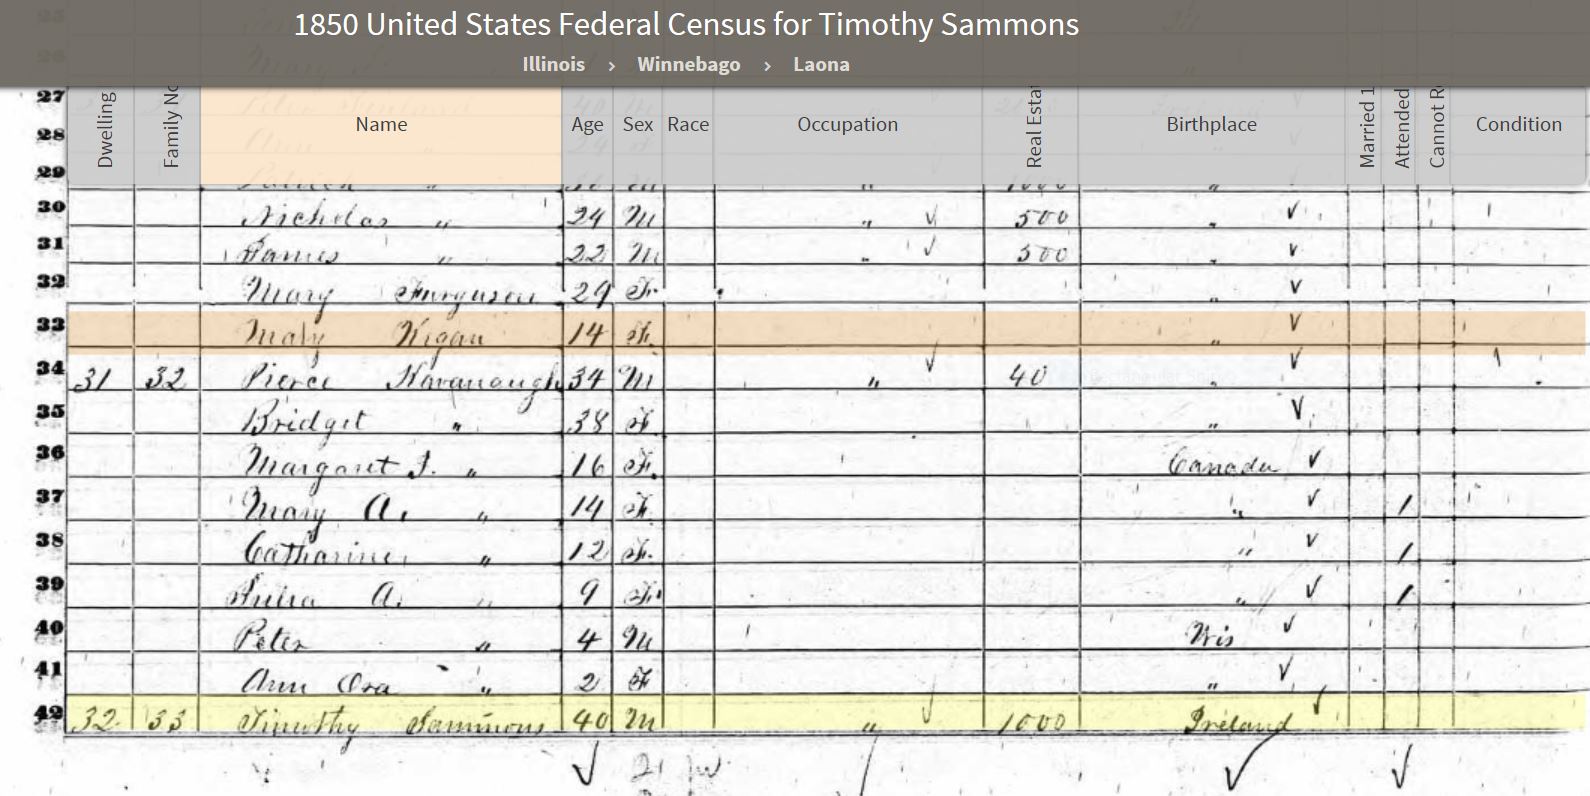 1850 United States Federal Census for Timothy Sammons
Illinois > Winnebago > Laona
Dwelling Family No Name Age Sex Race Occupation Real Esta Birthplace Married 1 Attended Cannot R Condition
27
28
29
30 Nicholas " 24 M " 500 "
31 James " 22 M " 500 "
32 Mary Furguson 29 F "
33 Mary 14 F "
34 31 32 Pierce Kavanaugh 34 M " 40 "
35 Bridget " 38 F "
36 Margaret J. " 16 F. Canada
37 Mary A. " 14 F. " 1
38 Catharine " 12 F. " 1
39 Julia A. " 9 F. " 1
40 Peter " 4 M Wis
41 Ann Ora " 2 F "
42 32 33 Timothy Sammons 40 M " 1000 Ireland